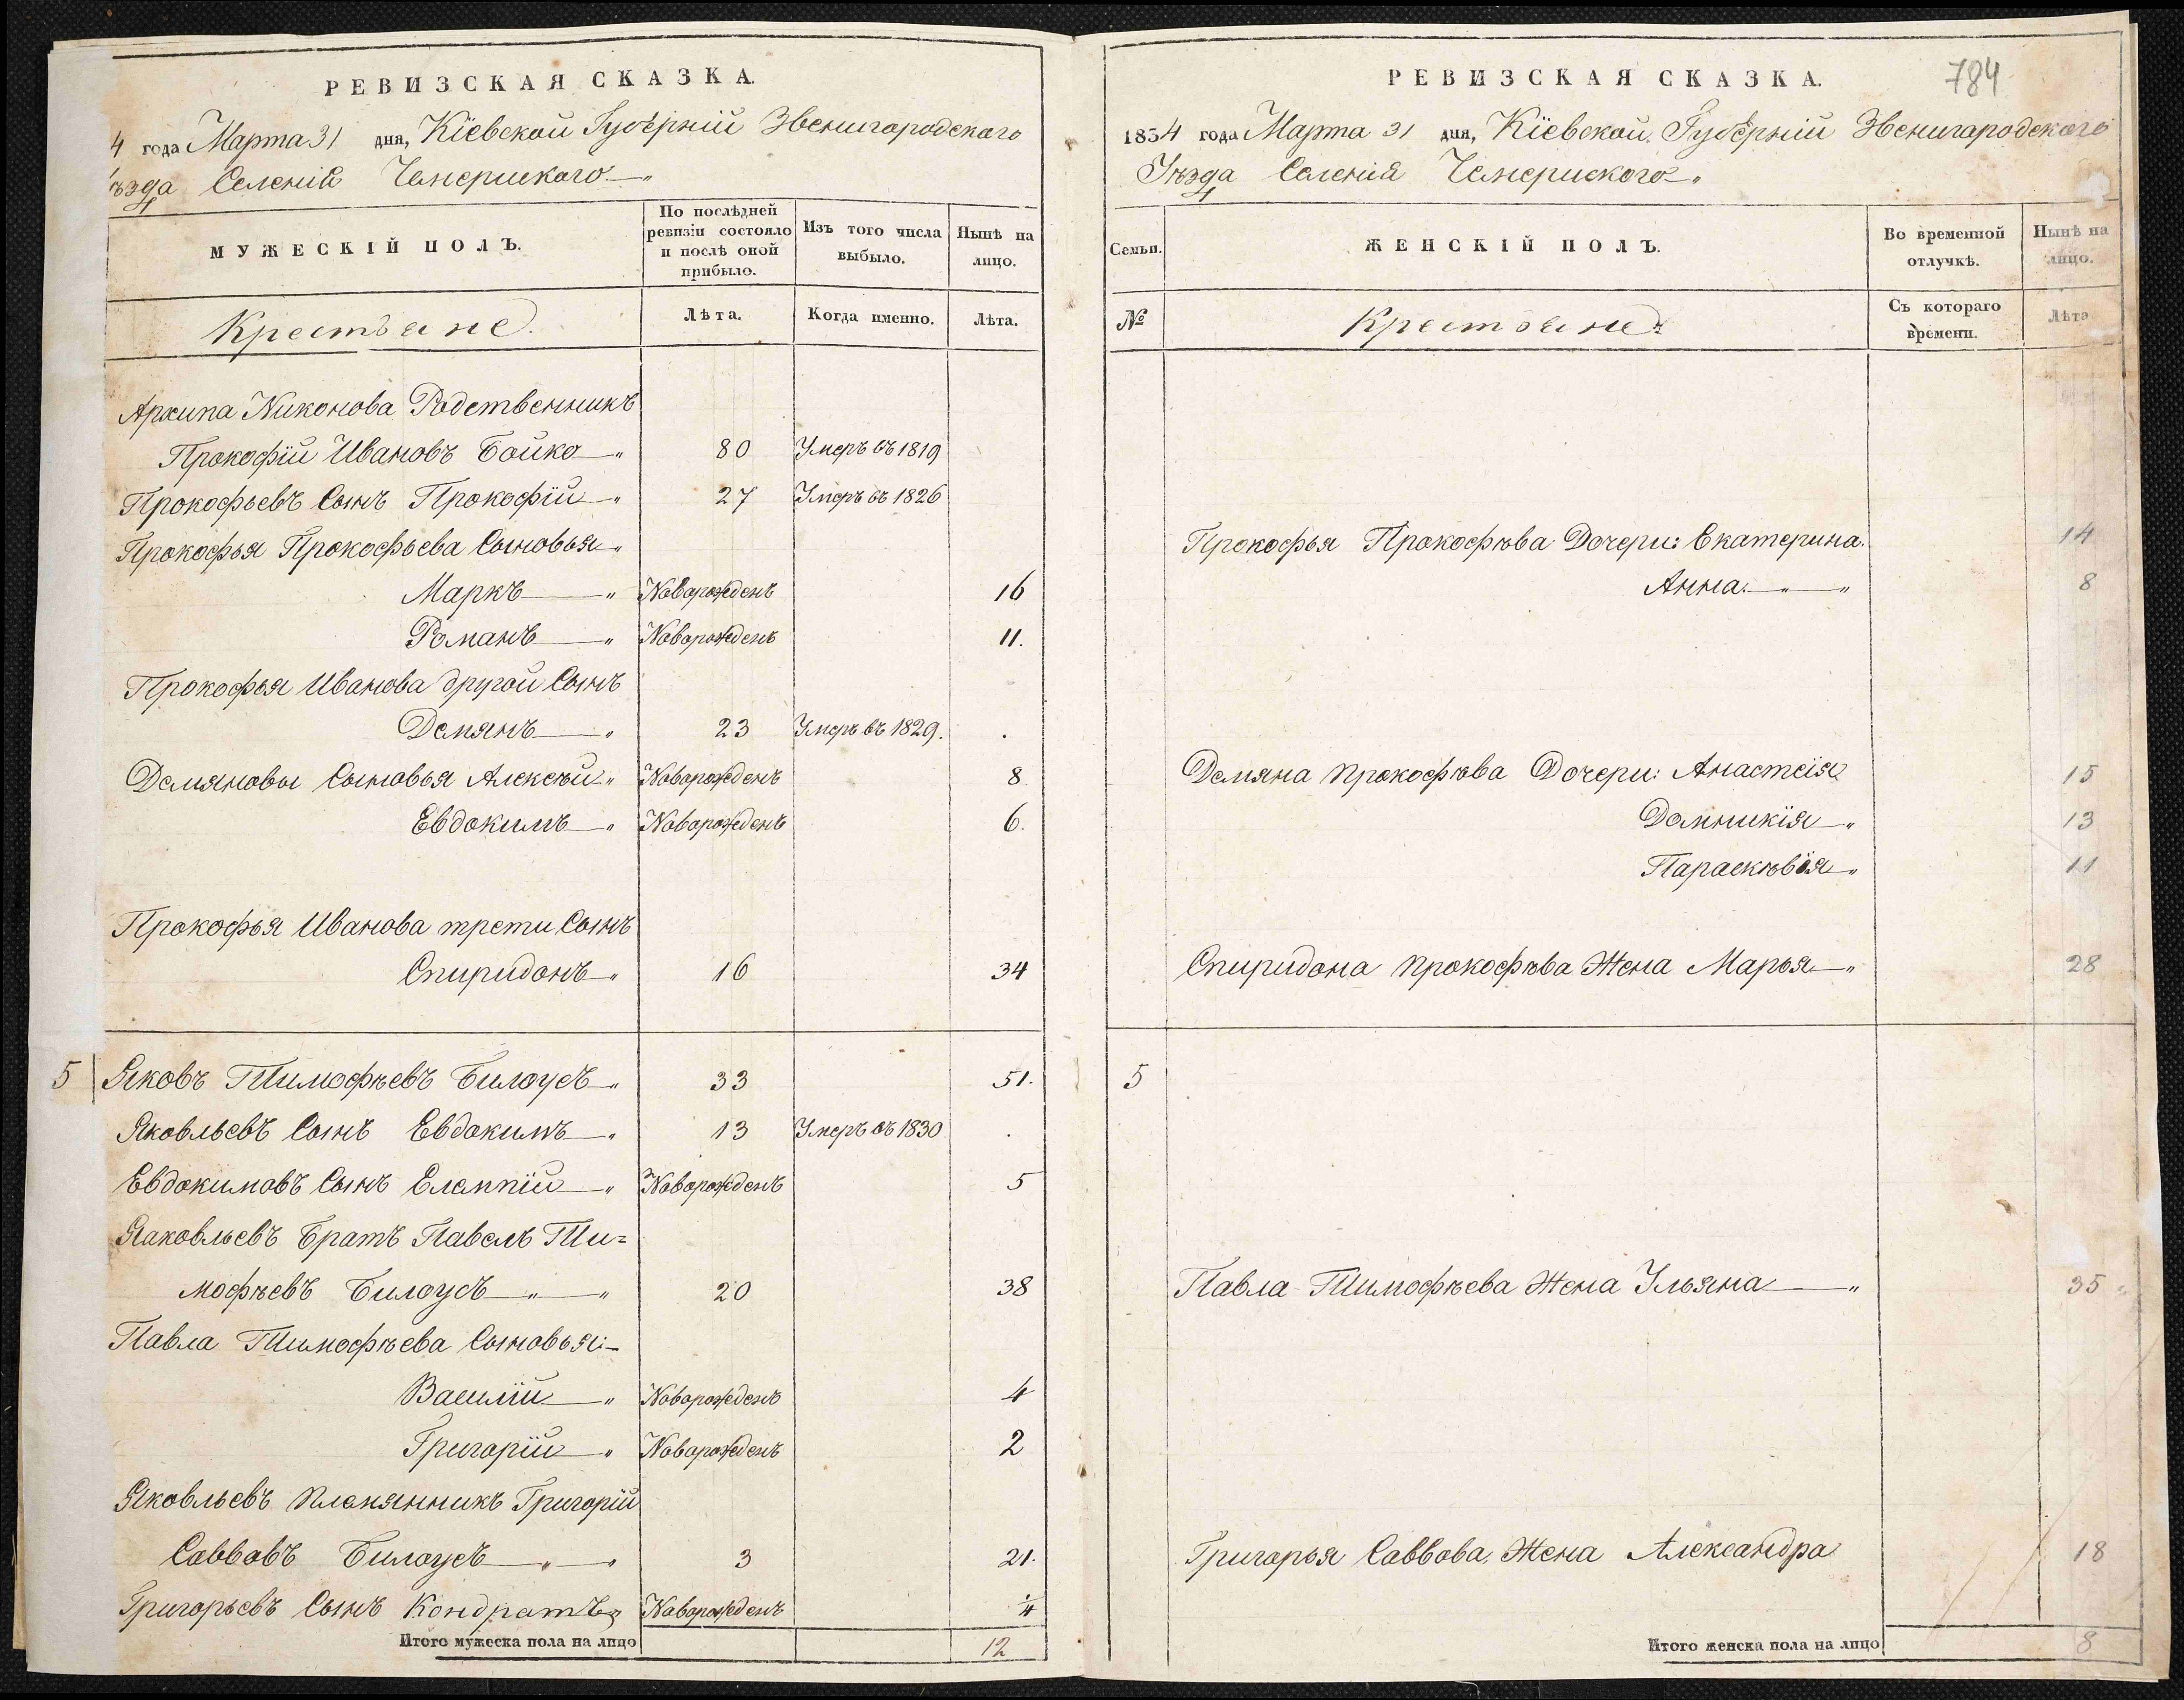 РЕВИЗСКАЯ СКАЗКА.
4 года Марта 31 дня, Кіевской Губерніи Звенигородскаго
ѣзда Селенія Чемерискаго
МУЖЕСКІЙ ПОЛЪ.
По послѣдней ревизіи состояло и послѣ оной прибыло.
Изъ того числа выбыло.
Нынѣ на лицо.
Крестьяне.
Лѣта.
Когда именно.
Лѣта.
Архипа Никонова Родственникъ
Прокофій Ивановъ Бойко 80 Умеръ въ 1819
Прокофьевъ Сынъ Прокофій 27 Умеръ въ 1826
Прокофья Прокофьева Сыновья
Маркъ Наворожденъ 16
Романъ Наворожденъ 11.
Прокофья Иванова другой Сынъ
Демянъ 23 Умеръ въ 1829.
Демяновы Сыновья Алексѣй Наворожденъ 8
Евдокимъ Наворожденъ 6.
Прокофья Иванова трети Сынъ
Спиридонъ 16 34
5 Яковъ Тимофѣевъ Билоусъ 33 51.
Яковльевъ Сынъ Евдокимъ 13 Умеръ въ 1830
Евдокимовъ Сынъ Елемпій Наворожденъ 5
Яаковльевъ Братъ Павелъ Ти=
мофѣевъ Билоусъ 20 38
Павла Тимофѣева Сыновья:
Василій Наворожденъ 4
Григорій Наворожденъ 2
Яковльевъ Племянникъ Григорій
Саввовъ Билоусъ 3 21.
Григорьевъ Сынъ Кондратъ Наворожденъ
Итого мужеска пола на лицо 12
784
РЕВИЗСКАЯ СКАЗКА.
1834 года Марта 31 дня, Кіевской Губерніи Звенигородскаго
Уѣзда Селенія Чемерискаго
Семьи.
ЖЕНСКІЙ ПОЛЪ.
Во временной отлучкѣ.
Нынѣ на лицо.
№
Крестьяне
Съ котораго времени.
Лѣта
Прокофья Прокофѣва Дочери: Екатерина. 14
Анна. 8
Демяна прокофѣва Дочери: Анастсія 15
Домникія 13
Параскѣвія 11
Спиридона прокофѣва Жена Марья 28
5
Павла Тимофѣева Жена Ульяна 35
Григорья Саввова Жена Александра 18
Итого женска пола на лицо 8